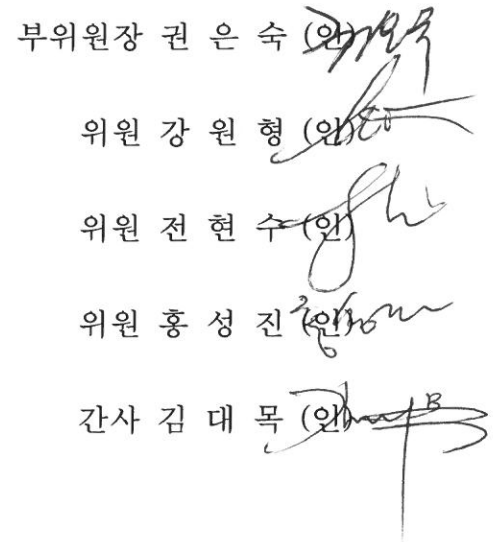 부위원장 권 은 숙 (인)
위원 강 원 형 (인)
위원 전 현 수 (인)
위원 홍 성 진 (인)
간사 김 대 목 (인)